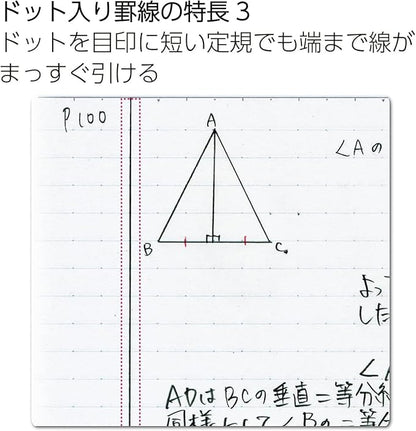 ドット入り罫線の特長３
ドットを目印に短い定規でも端まで線が
まっすぐ引ける
P100
A
∠Aの
B
C
よっ
した
∠A
ADはBCの垂直二等分
同様にして∠Bの二等分